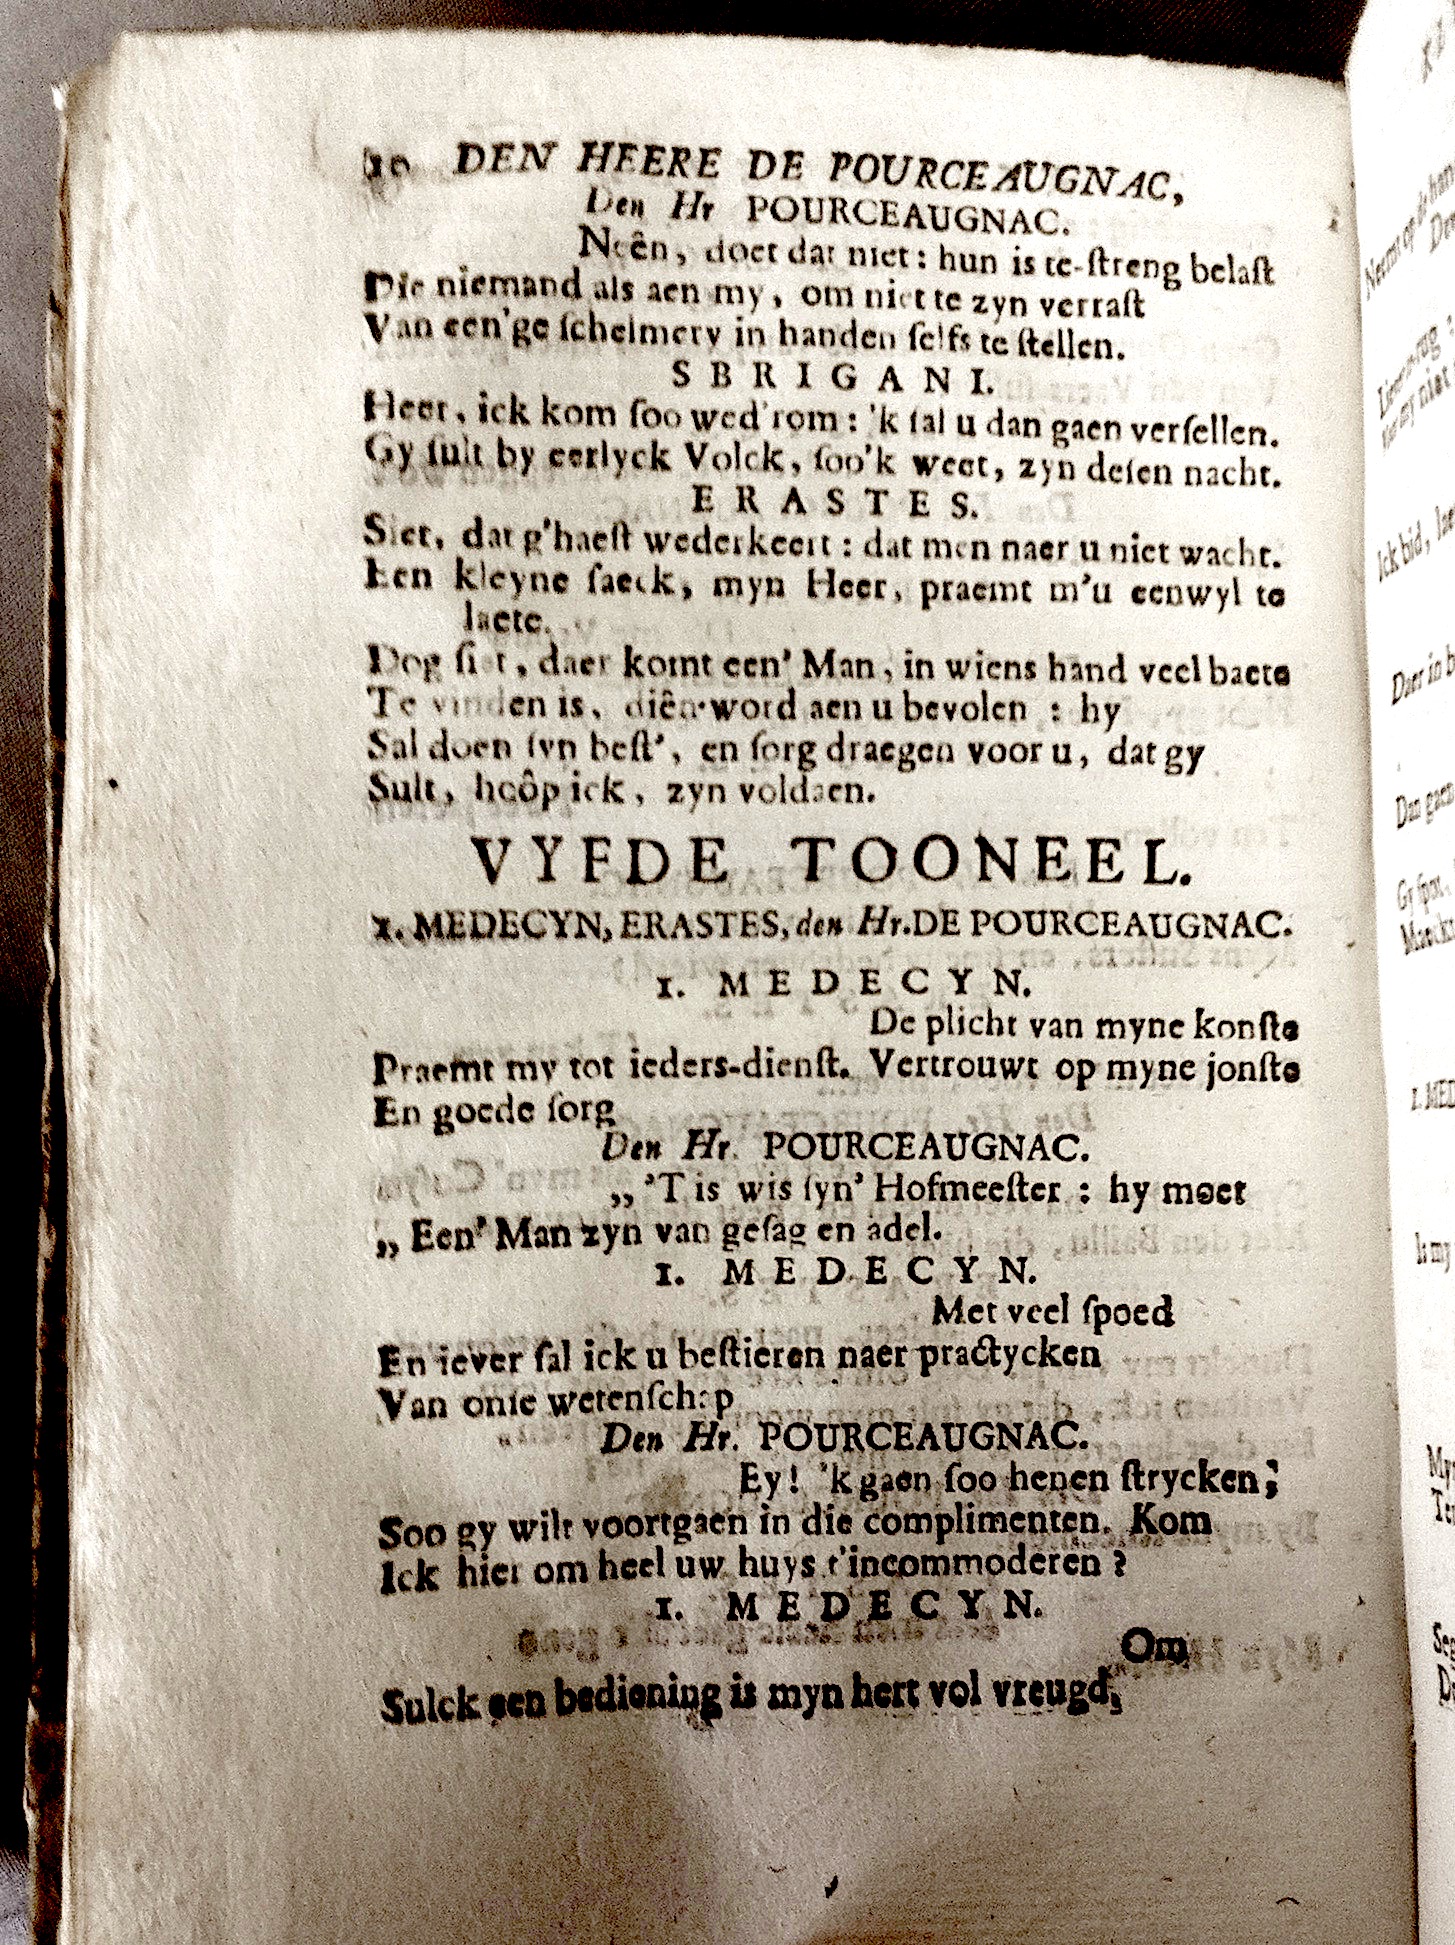 10 DEN HEERE DE POURCEAUGNAC,
Den Hr POURCEAUGNAC.
Neên, doet dat niet: hun is te-ſtreng belaſt
Die niemand als aen my, om niet te zyn verraſt
Van een'ge ſchelmery in handen ſelfs te ſtellen.
SBRIGANI.
Heer, ick kom ſoo wed'rom: 'k ſal u dan gaen verſellen.
Gy ſult by eerlyck Volck, ſoo'k weet, zyn deſen nacht.
ERASTES.
Siet, dat g'haeſt wederkeert: dat men naer u niet wacht.
Een kleyne ſaeck, myn Heer, praemt m'u eenwyl te
laete.
Dog ſiet, daer komt een' Man, in wiens hand veel baete
Te vinden is, diên word aen u bevolen : hy
Sal doen ſyn beſt', en ſorg draegen voor u, dat gy
Sult, hoôp ick, zyn voldaen.
VYFDE TOONEEL.
1. MEDECYN, ERASTES, den Hr. DE POURCEAUGNAC.
1. MEDECYN.
De plicht van myne konſte
Praemt my tot ieders-dienſt. Vertrouwt op myne jonſte
En goede ſorg
Den Hr. POURCEAUGNAC.
„ 'T is wis ſyn' Hofmeeſter : hy moet
„ Een' Man zyn van geſag en adel.
1. MEDECYN.
Met veel ſpoed
En iever ſal ick u beſtieren naer practycken
Van onſe wetenſchap
Den Hr. POURCEAUGNAC.
Ey! 'k gaen ſoo henen ſtrycken;
Soo gy wilt voortgaen in die complimenten. Kom
Ick hier om heel uw huys t'incommoderen ?
1. MEDECYN.
Om
Sulck een bediening is myn hert vol vreugd,